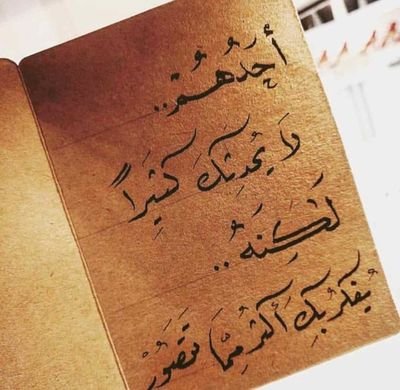 أَحَدُهُمْ..
لَا يُحَدِثُكَ كَثِيرَاً
لَكِنَهُ..
يُفَكِرُ بِكَ أَكْثَرْ مِمَّا تَتَصَوَرْ